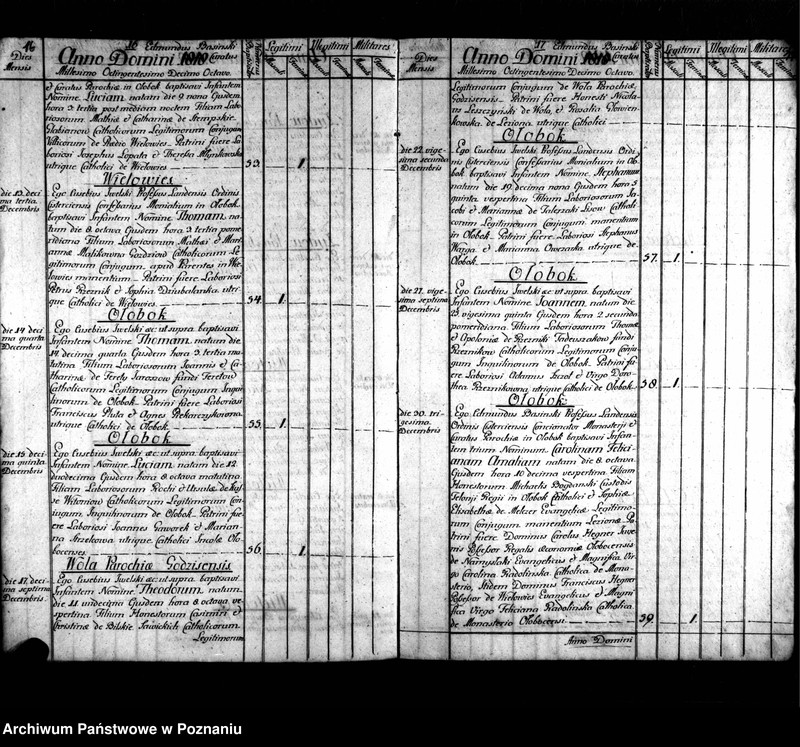 16
Dies
Mensis
16 Edmundus Basinski
Anno Domini 1818 Curatus
Millesimo Octingentesimo Decimo Octavo
Legitimi
Illegitimi
Militares
et Curatus Parochiæ in Olobok baptisavi Infantem
Nomine Luciam natam die 9 nona Ejusdem
hora 3 tertia post mediam noctem Filiam Labo
riosorum Mathiæ et Catharinæ de
Catholicorum Legitimorum Conjugum
de Wielowies. Patrini fuere La
boriosi Josephus Lopata et Theresa
utrique Catholici de Wielowies
53. 1.
Wielowies
die 13. deci
ma tertia
Decembris
Ego Eusebius Iwelski Professus Landensis Ordinis
Cisterciensis Confessarius Monialium in Olobok
baptisavi Infantem Nomine Thomam, na
tum die 8 octava Ejusdem hora 3 tertia pome
ridiana Filium Laboriosorum Mathæi et Mari
annæ Catholicorum Le
gitimorum Conjugum, apud Parentes in Wie
lowies manentium. Patrini fuere Laboriosi
Petrus Rzeznik et Sophia utri
que Catholici de Wielowies
54. 1.
Olobok
die 14 deci
ma quarta
Decembris
Ego Eusebius Iwelski ac ut supra baptisavi
Infantem Nomine Thomam natum die
14 decima quarta Ejusdem hora 3 tertia ma
tutina Filium Laboriosorum Joannis et Ca
tharinæ de
Catholicorum Legitimorum Conjugum Inqui
linorum de Olobok. Patrini fuere Laboriosi
Franciscus Pluta et Agnes Piekarzykowna
utrique Catholici de Olobok
55. 1.
Olobok
die 15 deci
ma quinta
Decembris
Ego Eusebius Iwelski ac ut supra baptisavi
Infantem Nomine Luciam natam die 12
duodecima Ejusdem hora 8 octava matutina
Filiam Laboriosorum Rochi et Ursulæ de
Catholicorum Legitimorum Con
jugum Inquilinorum de Olobok. Patrini fu
ere Laboriosi Joannes Gaworek et Marian
na utrique Catholici Incolæ Olo
bocenses
56. 1.
Wola Parochiæ Godzisensis
die 17. deci
ma septima
Decembris
Ego Eusebius Iwelski ac ut supra baptisavi
Infantem Nomine Theodorum natum
die 11 undecima Ejusdem hora 8 octava ve
spertina Filium Honestorum Casimiri et
Christinæ de Bilskie Sawickich Catholicorum
Legitimorum
Dies
Mensis
17 Edmundus Basinski
Anno Domini 1818 Curatus
Millesimo Octingentesimo Decimo Octavo
Legitimi
Illegitimi
Militares
Legitimorum Conjugum de Wola Parochiæ
Godzisensis. Patrini fuere Honesti Nicola
us Leszczynski de Wola, et Rosalia
de Leziona utrique Catholici
Olobok
die 22. vige
sima secunda
Decembris
Ego Eusebius Iwelski Professus Landensis Ordi
nis Cisterciensis Confessarius Monialium in Olo
bok baptisavi Infantem Nomine Stephanum
natum die 19. decima nona Ejusdem hora 5
quinta vespertina Filium Laboriosorum Ja
cobi et Mariannæ de Catholi
corum Legitimorum Conjugum manentium
in Olobok. Patrini fuere Laboriosi Stephanus
Warga et Marianna utrique de
Olobok
57. 1.
Olobok
die 27. vige
sima septima
Decembris
Ego Eusebius Iwelski ac ut supra baptisavi
Infantem Nomine Joannem, natum die
25 vigesima quinta Ejusdem hora 2 secunda
pomeridiana Filium Laboriosorum Thomæ
et Apoloniæ de
Catholicorum Legitimorum Conju
gum Inquilinorum de Olobok. Patrini fu
ere Laboriosi Adamus et Virgo Doro
thea Rzeznikowna utrique Catholici de Olobok
58. 1.
Olobok
die 30. tri
gesima
Decembris
Ego Edmundus Basinski Professus Landensis
Ordinis Cisterciensis Concionator Monasterij et
Curatus Parochiæ in Olobok baptisavi Infan
tem trium Nominum, Carolinam Felici
anam Amaliam natam die 8. octava
Ejusdem hora 10 decima vespertina Filiam
Honestorum Michaelis Bogdanski Custodis
Telonij Regij in Olobok Catholici et Sophiæ
Elisabethæ de Melzer Evangelicæ Legitimo
rum Conjugum manentium Lezionæ Pa
trini fuere Dominus Carolus Hegner Juve
nis Possessor Regalis œconomiæ Olobocensis
de Namyslaki Evangelicus et Magnifica Vir
go Carolina Radolinska Catholica de Mona
sterio, Itidem Dominus Franciscus Hegner
Possessor de Wielowies Evangelicus et Magni
fica Virgo Feliciana Radolinska Catholica
de Monasterio Olobocensi
59. 1.
Anno Domini
Archiwum Państwowe w Poznaniu